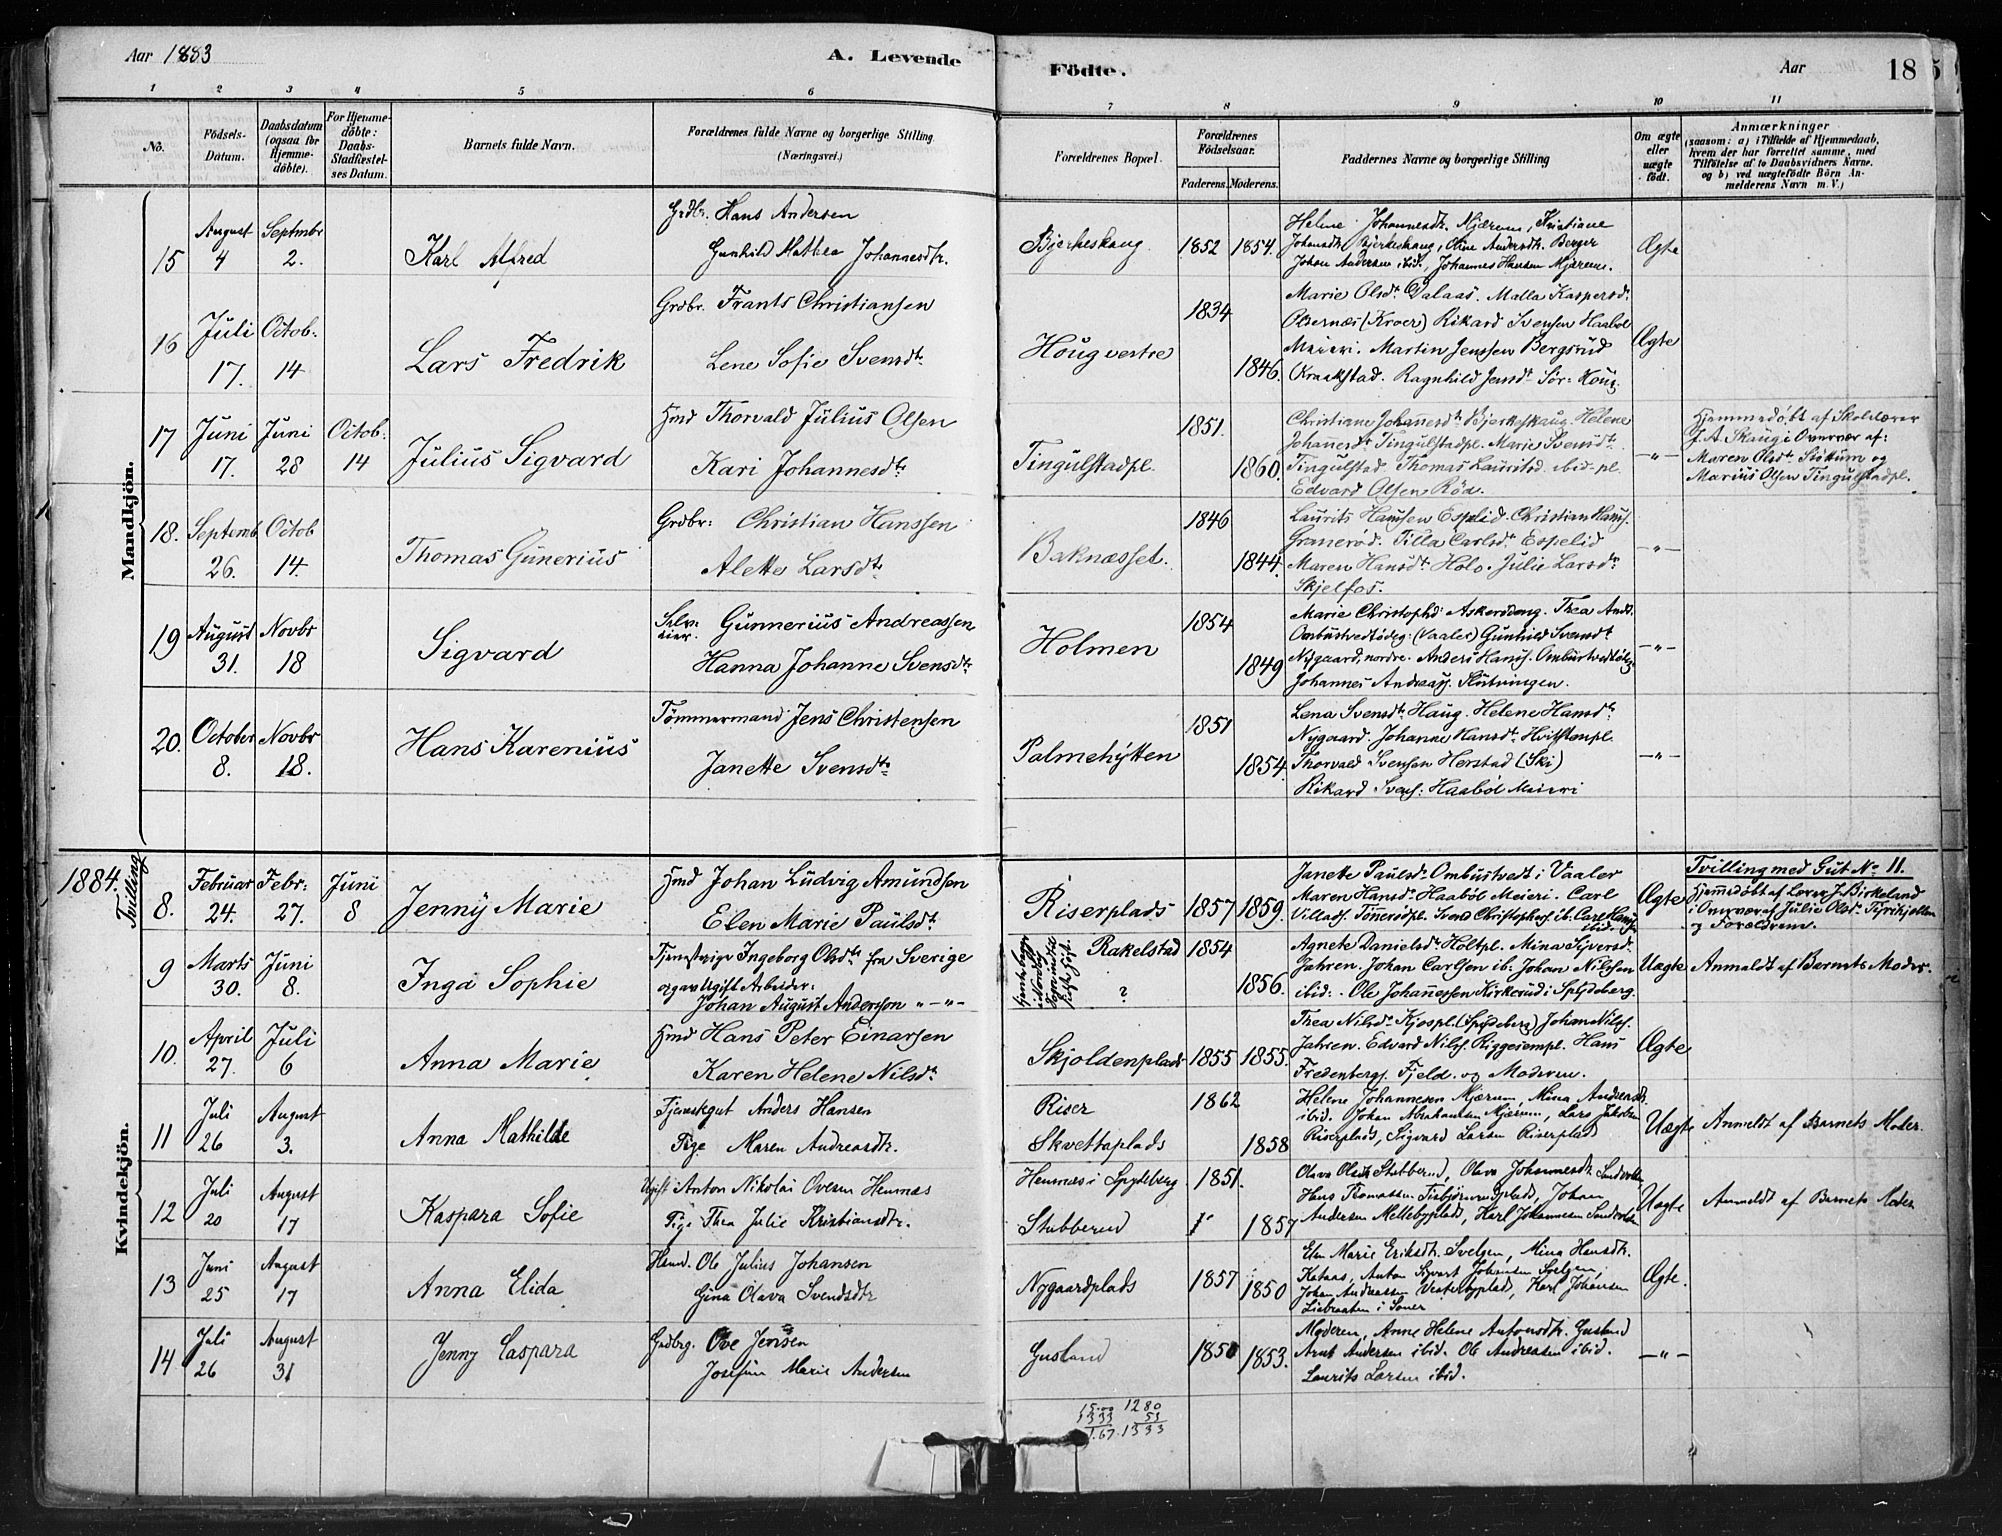 Aar 1883
A. Levende Födte.
Aar 18
5
1 2 3 4 5 6 7 8 9 10 11
No.
Födsels-Datum.
Daabsdatum (ogsaa for Hjemme-döbte).
For Hjemme-döbte: Daabs-Stadfæstel-ses Datum.
Barnets fulde Navn.
Forældrenes fulde Navne og borgerlige Stilling (Næringsvei.)
Forældrenes Bopæl.
Forældrenes Födselsaar.
Faderens. Moderens.
Faddernes Navne og borgerlige Stilling
Om ægte eller uægte födt.
Anmærkninger
(saasom: a) i Tilfælde af Hjemmedaab, hvem der har forrettet samme, med Tilföielse af to Daabsvidners Navne. og b) ved uægtefödte Börn An-melderens Navn m. V.)
Mandkjön.
15 August 4 Septmbr 2. Karl Alfred
Grdbr. Hans Andersen
Gunhild Mathea Johannesdtr.
Bjerkeskaug 1852 1854.
Helene Johannesdtr. Mjærum, Kristiane
Johansdtr. Bjerkeskaug, Oline Andersdtr. Berger
Johan Andersen ibid., Johannes Hansen Mjærum.
Ægte
16 Juli 17. Octob: 14 Lars Fredrik
Grdbr. Frants Christiansen
Lene Sofie Svensdtr
Houg vestre 1834 1846.
Marie Olsdtr Dalaas. Malla Kaspersdr
(Kroer) Rikard Svensen Haabøl
Meieri. Martin Jenssen Bergsrud
Kraakstad. Ragnhild Jensdr Sör-Houg.
Ægte
17 Juni 17. Juni 28 Octob: 14 Julius Sigvard
Hmd Thorvald Julius Olsen
Kari Johannesdtr
Tingulstadpl. 1851. 1860.
Christiane Johannesdtr Bjerkeskaug. Helene
Johanesdtr Tingulstadpl. Marie Svensdtr
Tingulstad. Thomas Lauritsd. ibid. pl.
Edvard Olsen Röd.
—"—
Hjemmedøbt af Skolelærer
J. A. Skaug i Overvær af:
Maren Olsdtr og
Marius Olsen Tingulstadpl.
18. Septemb 26. Octob 14. Thomas Gunerius
Grdbr: Christian Hanssen
Alette Larsdtr
Baknæsset. 1846 1844.
Laurits Hanssen Espelid. Christian Hanss.
Granerød. Tilla Carlsdr Espelid
Maren Hansdtr Holo. Julie Larsdtr
Skjelfos.
—"—
19 August 31. Novbr 18 Sigvard
Selveier. Gunnerius Andreassen
Hanna Johanne Svensdtr
Holmen 1854 1849
Marie Christophd Thea Andr.
(Vaaler) Gunhild Svensdtr
Nygaard, nordre. Anders Hanss.
Johannes Andreass. Slutningen.
—"—
20. October 8. Novbr 18. Hans Karenius
Tömmermand Jens Christensen
Janette Svensdtr
Palmehytten 1851 1854
Lena Svensdtr Haug. Helene Hansdtr
Nygaard. Johanne Hansdtr
Thorvald Svensen Herstad (Ski)
Rikard Svens: Haabøl Meieri
—"—
1884.
Kvindekjön.
Tvilling
8. Februar 24. Febr: 27. Juni 8 Jenny Marie
Hmd Johan Ludvig Amundsen
Elen Marie Paulsdtr
Riserplads 1857 1859.
Janette Paulsdr Ombustvedt i Vaaler
Maren Hansdr Haabøl Meieri. Carl
Villads. Tönnerødpl. Svend Christophers. ib: Carl Hanss. ibid.
Ægte
Tvilling med Gut No 11.
Hjemmedøbt af Lærer J. Birkeland
i Overvær af Julie Olsdr
og Forældrene.
9 Marts 30. Juni 8. Inga Sophie
Tjenestepige Ingeborg Olsdtr fra Sverige
og ugift Arbeider:
Johan August Andersson "—"—
Rakelstad ? 1854 1856.
Agnete Danielsdtr Holtpl. Mina Syversdr
Jahren. Johan Carlsen ib: Johan Nilssen
ibid:. Ole Johannessen Kirkerud i Spydeberg.
Uægte
Anmeldt af Barnets Moder.
10. April 27. Juli 6 Anna Marie
Hmd Hans Peter Einarsen
Karen Helene Nilsdtr
Skjoldenplads 1855 1855.
Thea Nilsdr Kjospl. (Spydeberg) Johan Nilss.
Jahren. Edvard Nilss. Hans
Fredenbergs. Fjeld. og Moderen.
Ægte
11 Juli 26 August 3. Anna Mathilde
Tjenestegut Anders Hansen
Pige Maren Andreasdtr.
Riser
Skvettaplads 1862 1858
Helene Johannesen Mjærum, Mina Andreasdtr.
ibid. Johan Abrahamsen Mjærum, Lars Jakobsen
Riserplads, Sigvard Larsen Riserplads
Uægte
Anmeldt af Barnets Moder.
12 Juli 20 August 17 Kaspara Sofie
Ugift Anton Nikolai Ovesen Hemnæs
Pige Thea Julie Kristiansdtr.
Hemnæs i Spydeberg
Stubberud 1851. 1857
Olava Olsdtr Stubberud, Olava Johannesdtr.
Hans Thomassen Johan
Andersen Mellebyplads, Karl Johannesen
Uægte
Anmeldt af Barnets Moder
13 Juni 25 August 17 Anna Elida
Husmd. Ole Julius Johansen
Gina Olava Svendsdtr
Nygaardplads 1857 1850
Elen Marie Eriksdtr. Svelgen, Mina Hansdtr.
Kataas, Anton Sigvart Johansen Svelgen,
Johan Andreassen Vesterbyplads, Karl Johansen
Liabraaten i Soner
Ægte.
14 Juli 26 August 31 Jenny Caspara
Gaardbrg. Ove Jensen
Josefine Marie Andersen
Gusland 1850 1853.
Moderen, Anne Helene Antonsdtr. Gusland
Arnt Andersen ibid. Ole Andreasen ibid.
Laurits Larsen ibid.
—"—
15.00 1280
1333 53
1.67. 1333